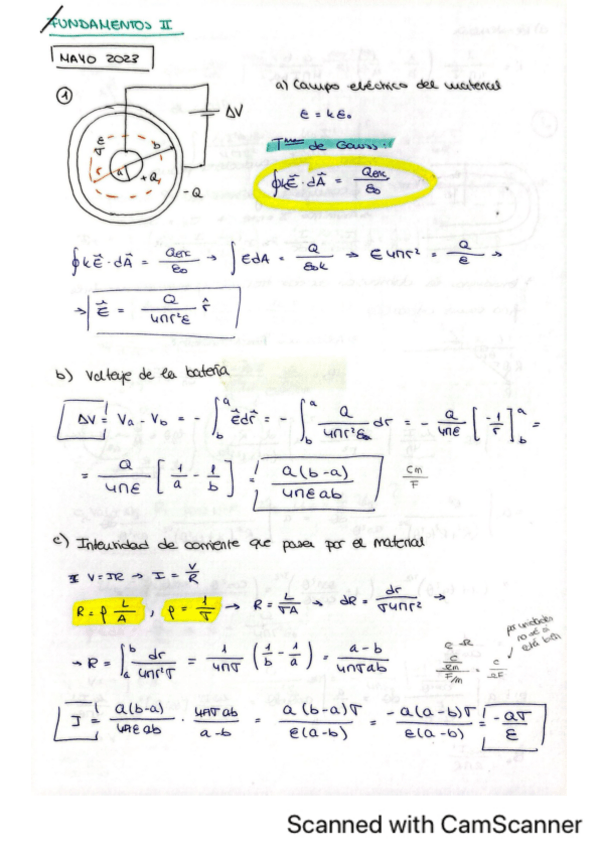 FUNDAMENTOS II
MAYO 2023
① a) Campo eléctrico del material
ΔV
ε = kε₀
Tma de Gauss:
∮kE⃗·dA⃗ = Qenc/ε₀
ε
σ
b
r
a
+Q
-Q
∮kE⃗·dA⃗ = Qenc/ε₀ → ∫EdA = Q/ε₀k → E4πr² = Q/ε →
→ E⃗ = Q/4πr²ε r̂
b) Voltaje de la batería
ΔV = Va - Vb = - ∫_b^a E⃗dr⃗ = - ∫_b^a Q/4πr²ε dr = - Q/4πε [-1/r]_b^a =
= Q/4πε [1/a - 1/b] = Q(b-a)/4πεab cm/F
c) Intensidad de corriente que pasa por el material
V=IR → I = V/R
R = ρ L/A , ρ = 1/σ → R = L/σA → dR = dr/σ4πr² →
→ R = ∫_a^b dr/4πr²σ = 1/4πσ (1/b - 1/a) = a-b/4πσab
por unidades
no sé si
está bien
I = Q(b-a)/4πεab · 4πσab/a-b = Q(b-a)σ/ε(a-b) = -Q(a-b)σ/ε(a-b) = -Qσ/ε
Scanned with CamScanner